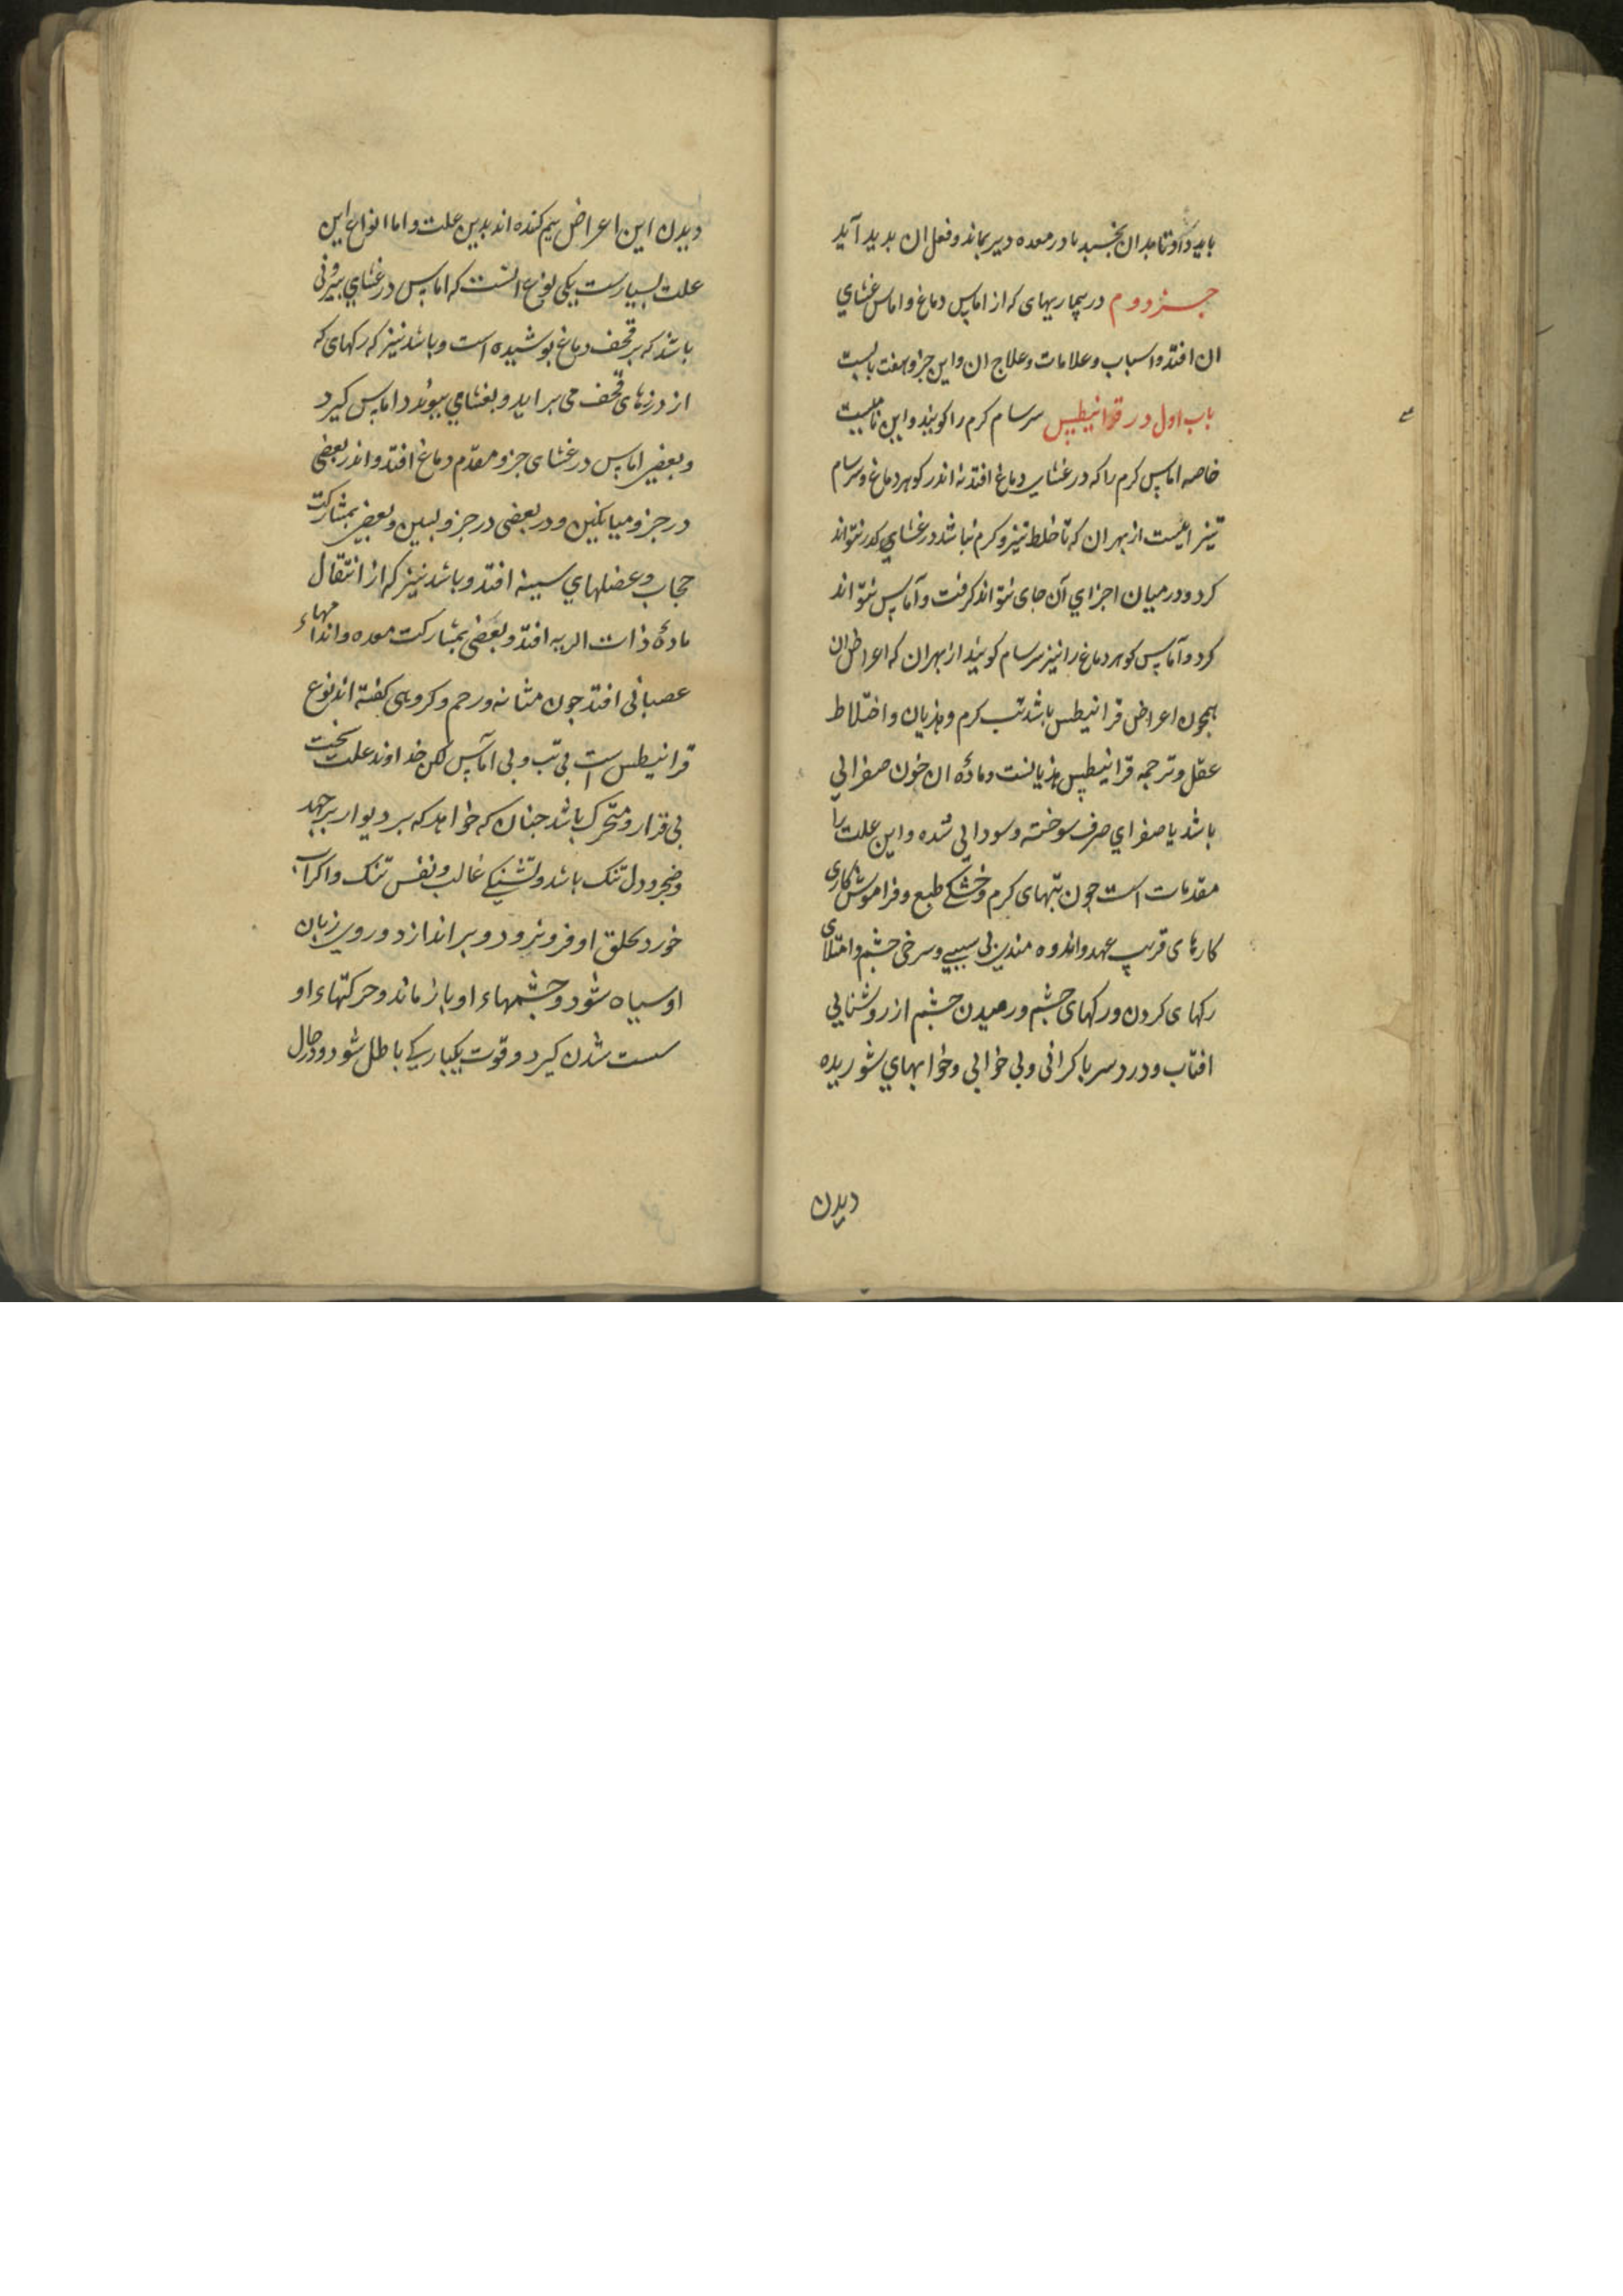 باید داد و تا بدان بخسبد تا در معده دیر بماند و فعل ان بدید آید
جزو دوم در بیماریهای که از اماس دماغ و اماس غشاي
ان افتد و اسباب و علامات و علاج ان و این جزو هفت بابست
باب اول در قرانیطس سرسام کرم را کویند و این نامیست
خاصه اماس کرم را که در غشاء دماغ افتد نه اندر کوهر دماغ و سرسام
تیز اینست از بهر ان که تا خلط تیز و کرم نباشد در غشاي کذر نتواند
کرد و در میان اجزاي آن جای نتواند کرفت و آماس نتواند
کرد و آماس کوهر دماغ را نیز سرسام کویند از بهر ان که اعراض ان
همچون اعراض قرانیطس باشد تب کرم و هذیان و اختلاط
عقل و ترجمه قرانیطس هذیانست و مادّه ان خون صفرایی
باشد یا صفراي صرف سوخته و سودایی شده و این علت را
مقدمات است چون تبهای کرم و خشکی طبع و فراموش کاری
کارهای قریب عهد و اندوه مندی بی سببی و سرخی چشم و امتلای
رکهای کردن و رکهای چشم و رمیدن چشم از روشنایی
افتاب و درد سر با کرانی و بی خوابی و خوابهاي شوریده
دیدن
دیدن این اعراض بیم کننده اند بدین علت و اما انواع این
علت بسیارست یکی نوع انست که اماس در غشاي بیرونی
باشد که بر قحف دماغ بوشیده است و باشد نیز که رکهای که
از درزهای قحف می براید و بغشامي بیوندد اماس کیرد
و بعضی اماس در غشای جزو مقدّم دماغ افتد و اندر بعضی
در جزو میانکین و در بعضی در جزو بسین و بعضی بمشارکت
حجاب و عضلهاي سینه افتد و باشد نیز که از انتقال
مادهٔ ذات الریه افتد و بعضی بمشارکت معده و اندامهاء
عصبانی افتد چون مثانه و رحم و کروهی کفته اند نوع
قرانیطس است بی تب و بی آماس لکن خداوند علت سخت
بی قرار و متحرک باشد چنان که خواهد که بر دیوار برجهد
و ضجر و دل تنک باشد و تشنکی غالب و نفس تنک و اکر آب
خورد بحلق او فرو نرود و براندازد و روی زبان
او سیاه شود و چشمهاء او باز ماند و حرکتهاء او
سست شدن کیرد و قوت بیکبارکی باطل شود و در حال